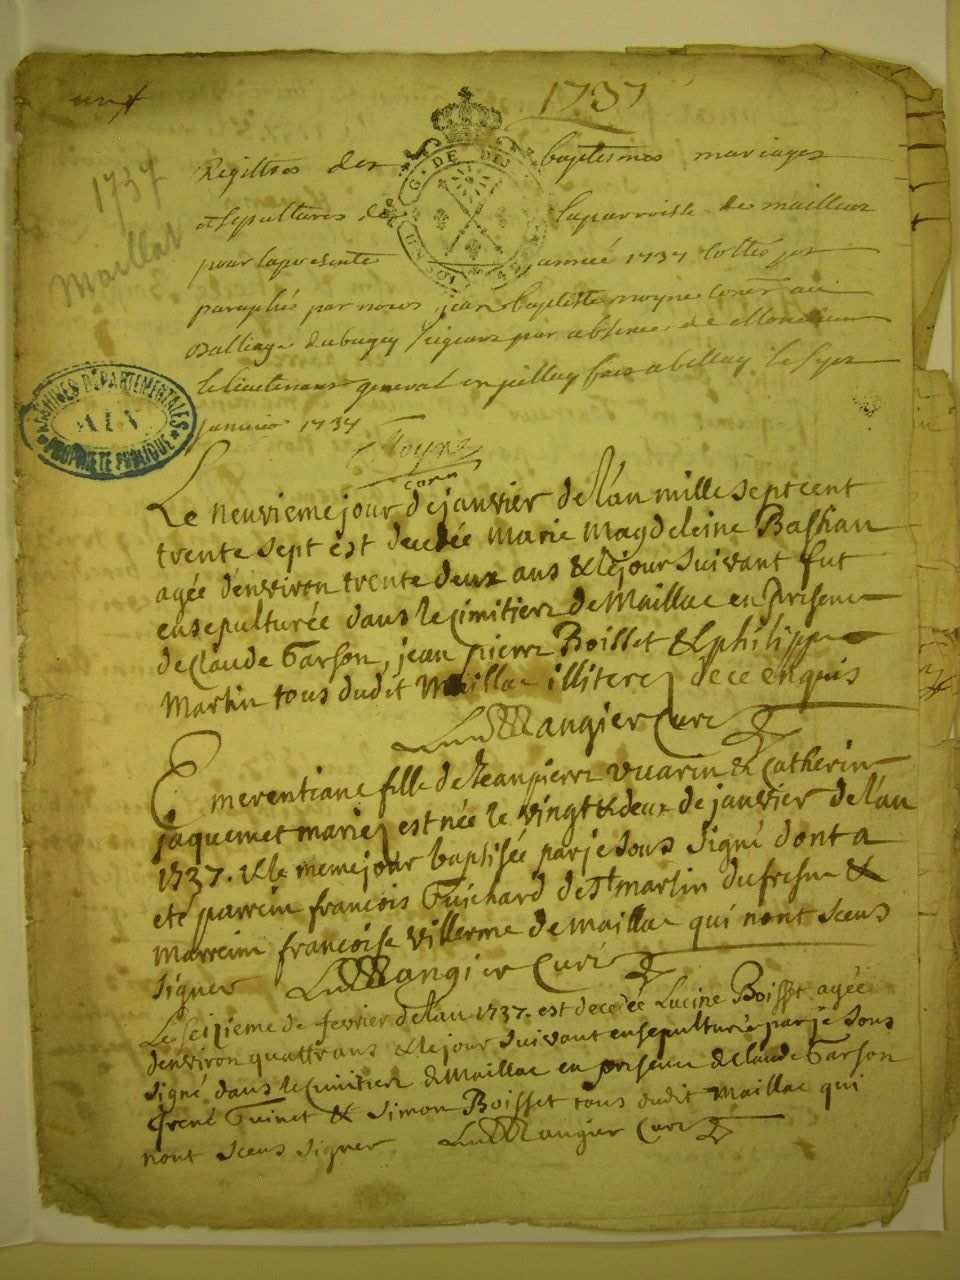 1737
1737
Maillat
Registres des baptesmes mariages
et sepultures de laparroisse de maillax
pour lapresente année 1737 Cottés et
paraphés par nous jean baptiste moyne Coner au
Balliage dubugey siegeant par absence de Monsieur
le lieutenant general
janvier 1737
Moyne
G. DE DIJ
ARCHIVES DÉPARTEMENTALES
AIN
PROPRIÉTÉ PUBLIQUE
Le neuvieme jour dejanvier delan mille sept cent
trente sept est decedée marie magdeleine Bastian
agée denviron trente deux ans & lejour suivant fut
ensepulturée dans le Cimitiere de Maillac en presence
de Claude Tarson, jean pierre Boisset & philippe
Martin tous dudit Maillac illiterez de ce enquis
Mangier Curé
Emerentiane fille de Jeanpierre vuarin & Catherine
jaquemet mariez est née le vingt & deux de janvier delan
1737. & le meme jour baptisée par je sous signé dont a
eté parrein francois Guichard de St martin dufresne &
marreine francoise villerme de maillac qui nont sceus
signer Mangier Curé
Le seizieme de fevrier delan 1737. est decedée Lucine Boisset agée
denviron quattre ans & lejour suivant ensepulturée par je sous
signé dans le Cimitiere de Maillac en presence de Claude Tarson
Guinet & Simon Boisset tous dudit Maillac qui
nont sceus signer Mangier Curé